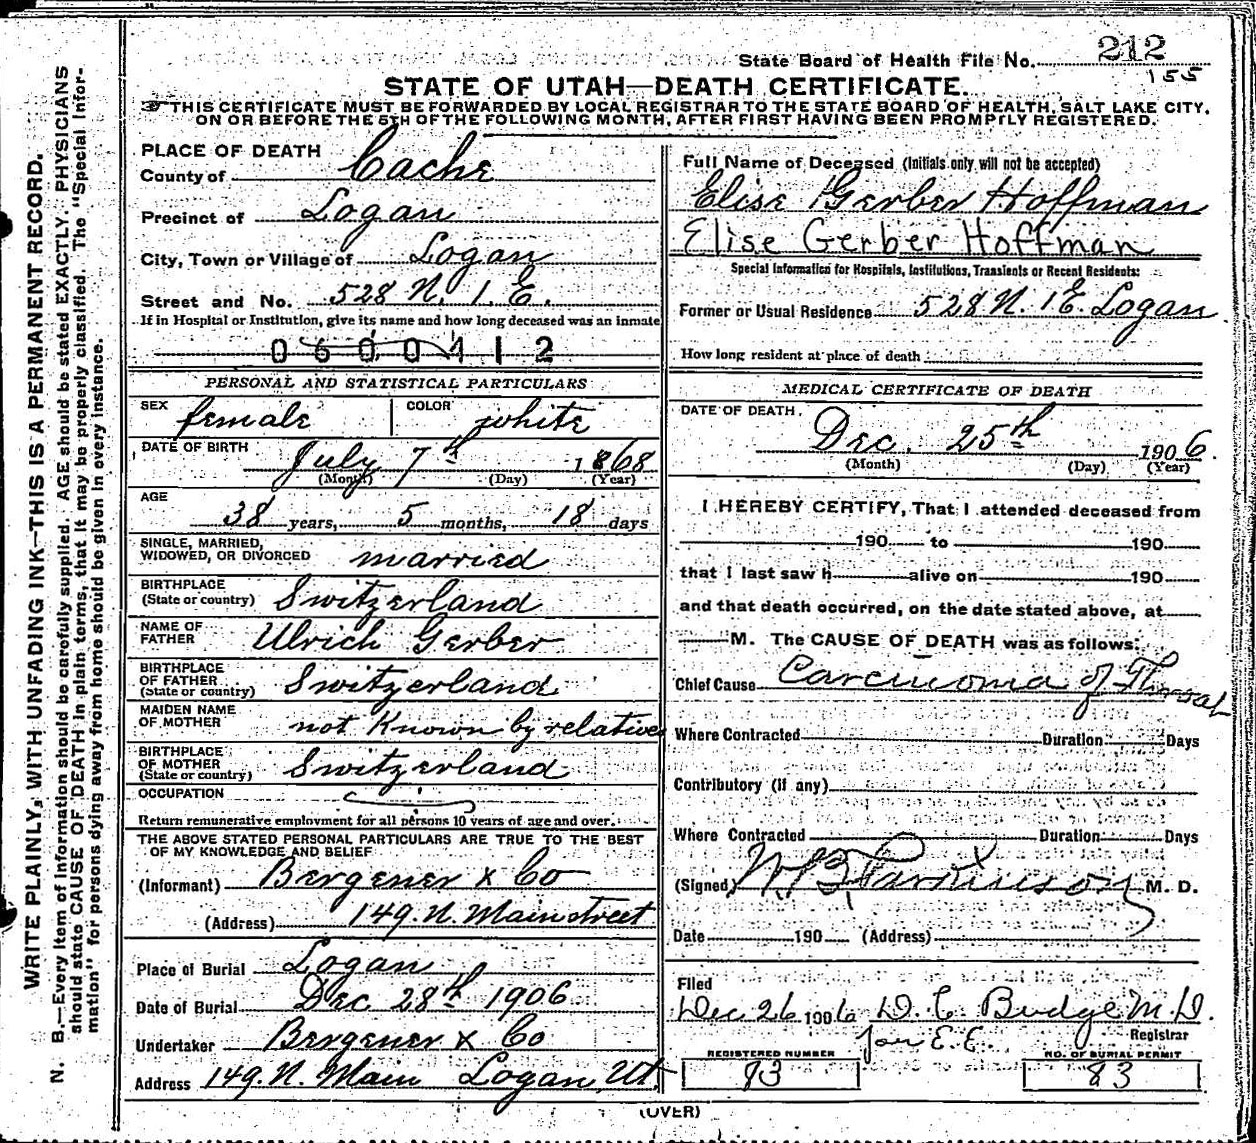 State Board of Health File No. 212
155
STATE OF UTAH—DEATH CERTIFICATE.
THIS CERTIFICATE MUST BE FORWARDED BY LOCAL REGISTRAR TO THE STATE BOARD OF HEALTH, SALT LAKE CITY,
ON OR BEFORE THE 5TH OF THE FOLLOWING MONTH, AFTER FIRST HAVING BEEN PROMPTLY REGISTERED.
WRITE PLAINLY, WITH UNFADING INK—THIS IS A PERMANENT RECORD.
N. B.—Every item of information should be carefully supplied. AGE should be stated EXACTLY. PHYSICIANS
should state CAUSE OF DEATH in plain terms, that it may be properly classified. The "Special Infor-
mation" for persons dying away from home should be given in every instance.
PLACE OF DEATH
County of Cache
Precinct of Logan
City, Town or Village of Logan
Street and No. 528 N. 1. E.
If in Hospital or Institution, give its name and how long deceased was an inmate
0600412
PERSONAL AND STATISTICAL PARTICULARS
SEX female COLOR white
DATE OF BIRTH July 7th 1868
(Month) (Day) (Year)
AGE 38 years, 5 months, 18 days
SINGLE, MARRIED,
WIDOWED, OR DIVORCED married
BIRTHPLACE
(State or country) Switzerland
NAME OF
FATHER Ulrich Gerber
BIRTHPLACE
OF FATHER
(State or country) Switzerland
MAIDEN NAME
OF MOTHER not Known by relatives
BIRTHPLACE
OF MOTHER
(State or country) Switzerland
OCCUPATION
Return remunerative employment for all persons 10 years of age and over.
THE ABOVE STATED PERSONAL PARTICULARS ARE TRUE TO THE BEST
OF MY KNOWLEDGE AND BELIEF
(Informant) Bergener & Co
(Address) 149. N. Main street
Place of Burial Logan
Date of Burial Dec 28th 1906
Undertaker Bergener & Co
Address 149. N. Main Logan, Ut.
Full Name of Deceased (Initials only will not be accepted)
Elise Gerber Hoffman
Elise Gerber Hoffman
Special Information for Hospitals, Institutions, Transients or Recent Residents:
Former or Usual Residence 528 N. 1 E. Logan
How long resident at place of death
MEDICAL CERTIFICATE OF DEATH
DATE OF DEATH. Dec. 25th 1906.
(Month) (Day) (Year)
I HEREBY CERTIFY, That I attended deceased from
190 to 190
that I last saw h alive on 190
and that death occurred, on the date stated above, at
M. The CAUSE OF DEATH was as follows:
Chief Cause Carcinoma of Throat
Where Contracted Duration Days
Contributory (if any)
Where Contracted Duration Days
(Signed) W. B. Parkinson M. D.
Date 190 (Address)
Filed
Dec 26 1906 D. C. Budge M. D.
Registrar
for E. E.
REGISTERED NUMBER
NO. OF BURIAL PERMIT
83
(OVER)